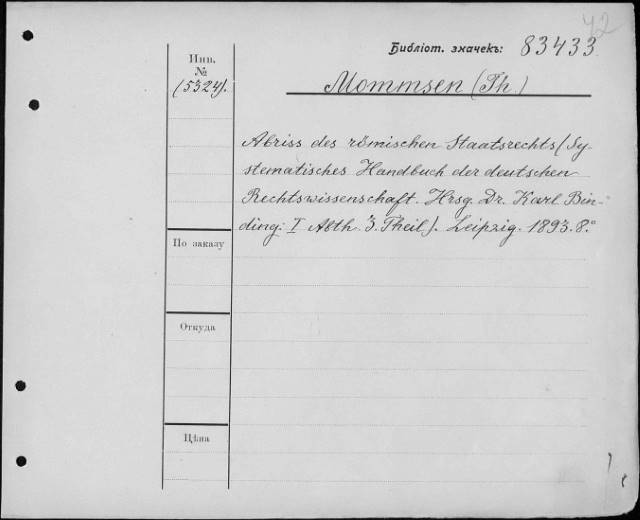 42
Библіот. значекъ: 83433.
Инв.
№
(5324).
Mommsen (Th.)
Abriss des römischen Staatsrechts (Sy-
stematisches Handbuch der deutschen
Rechtswissenschaft. Hrsg. Dr. Karl Bin-
ding: I Abth. 3. Theil). Leipzig. 1893. 8.°
По заказу
Откуда
Цѣна